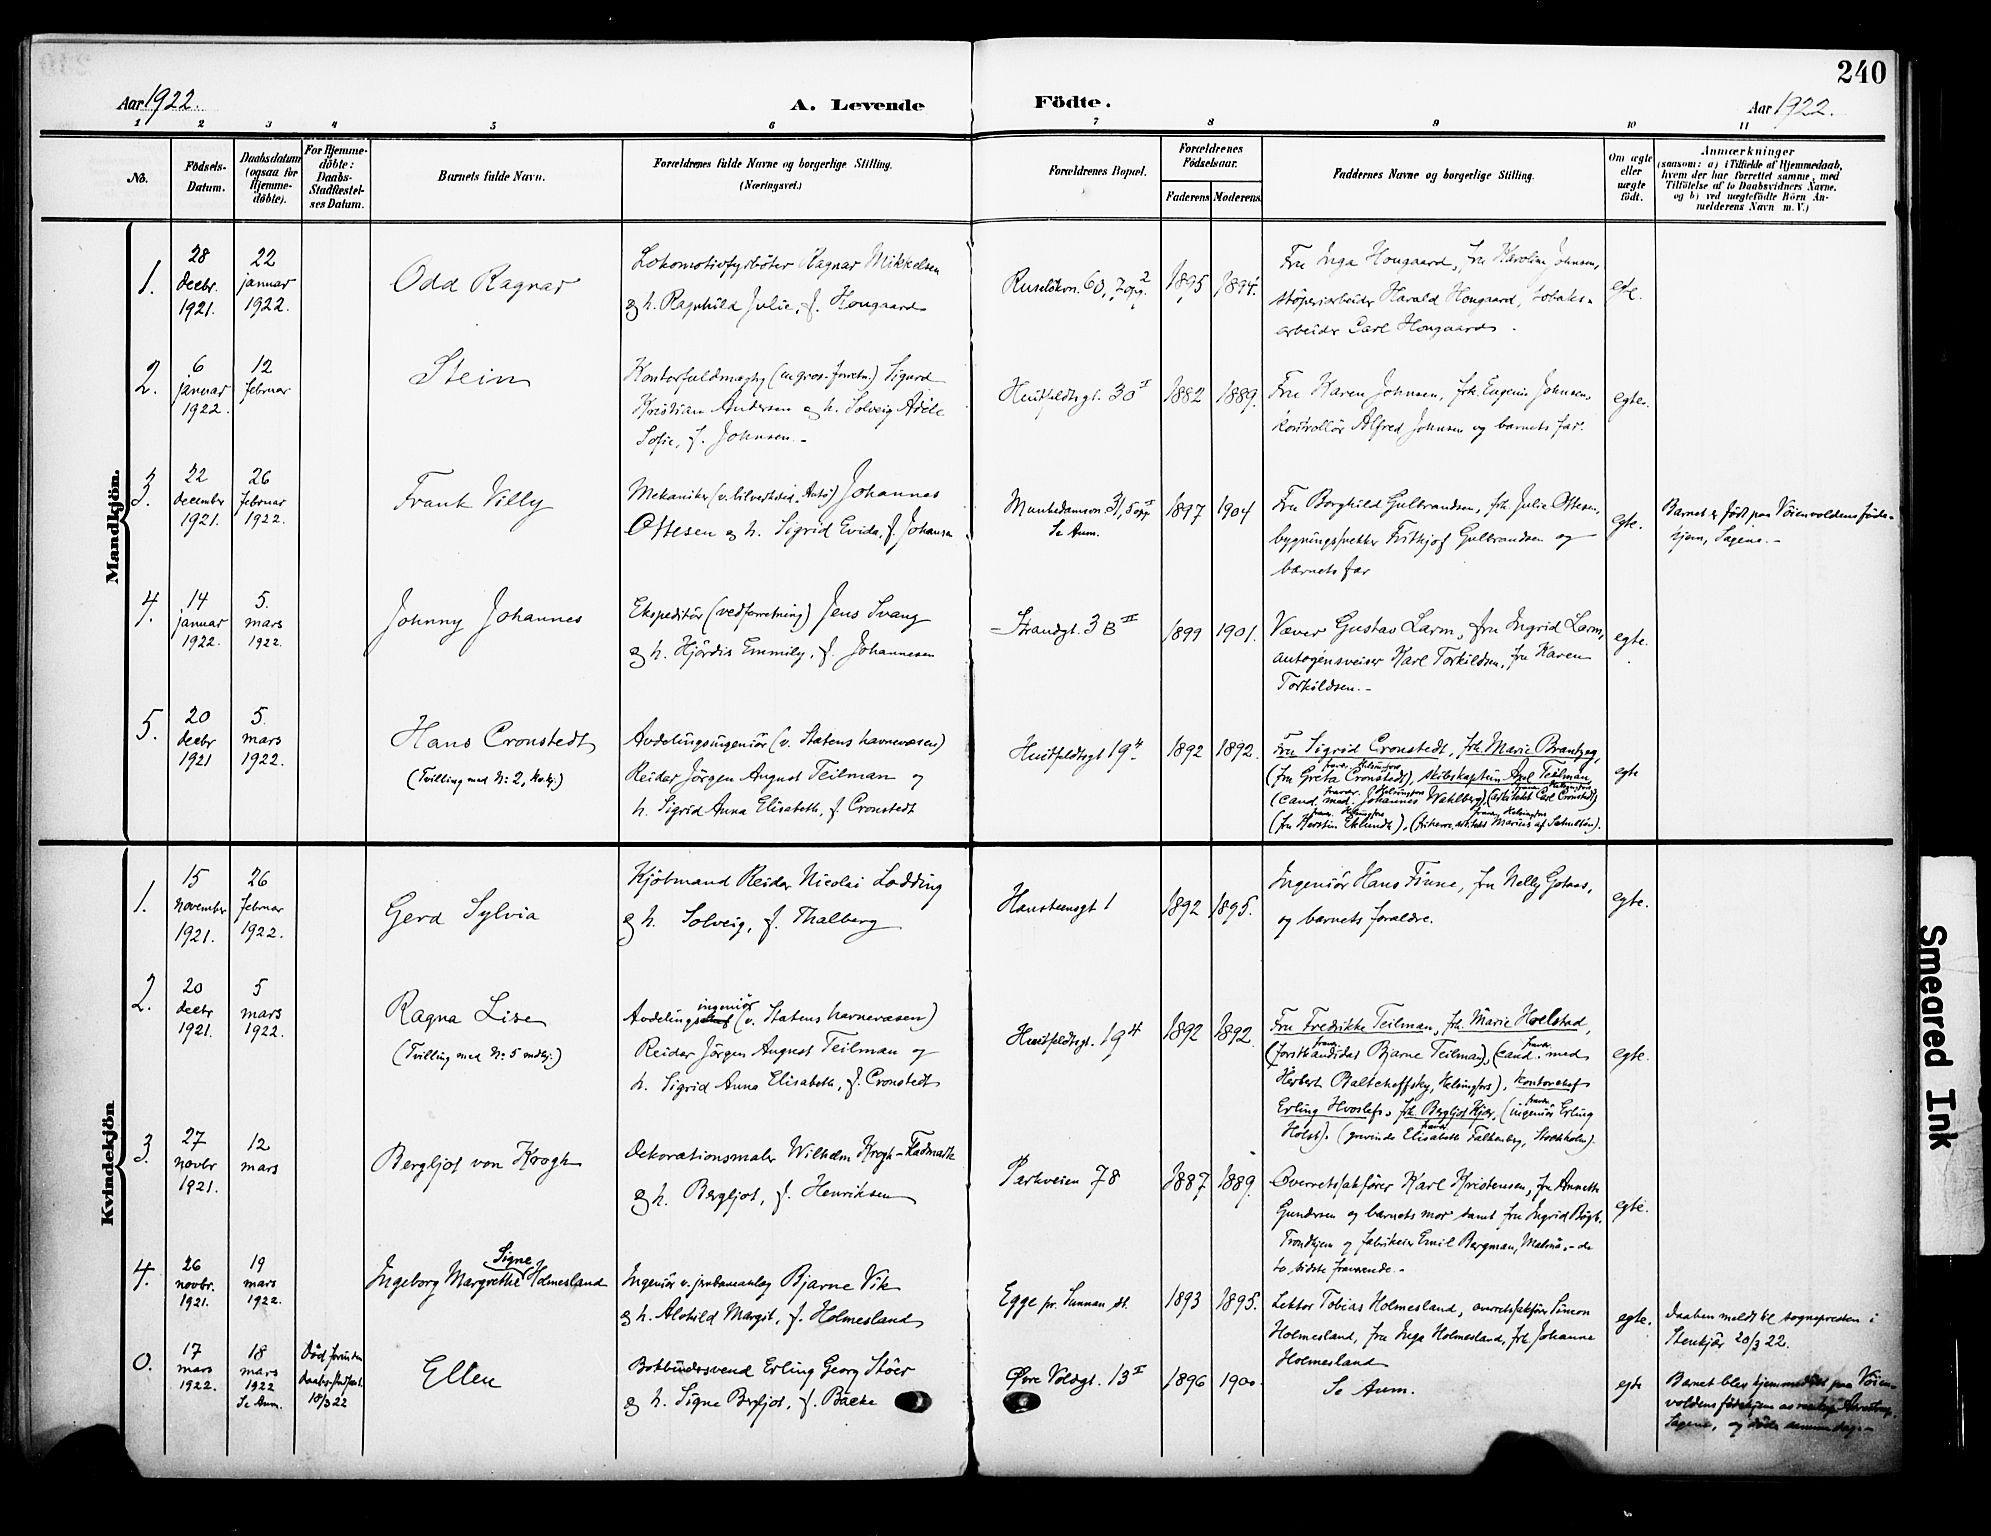 240
Aar 1922.
A. Levende Födte.
Aar 1922.
1 2 3 4 5 6 7 8 9 10 11
No.
Födsels-Datum.
Daabsdatum (ogsaa for Hjemme-döbte).
For Hjemme-döbte: Daabs-Stadfæstel-ses Datum.
Barnets fulde Navn.
Forældrenes fulde Navne og borgerlige Stilling.
(Næringsvei.)
Forældrenes Bopæl.
Forældrenes Födselsaar.
Faderens
Moderens
Faddernes Navne og borgerlige Stilling.
Om ægte eller uægte født.
Anmærkninger
(saasom: a) i Tilfælde af Hjemmedaab,
hvem der har forrettet samme, med
Tilföielse af to Daabsvidners Navne.
og b) ved uægtefödte Börn An-
melderens Navn m. V.)
Mandkjön.
1.
28 decbr. 1921.
22 januar 1922.
Odd Ragnar
Lokomotivfyrböter Ragnar Mikkelsen
og h. Ragnhild Julie, f. Hougaard
Ruselökvn. 60, 7 opg. 2
1895
1894.
Fru Inga Hougaard, fru Karoline Johnsen,
støperiarbeider Harald Hougaard, tobaks-
arbeider Carl Hougaard.
egte.
2.
6 januar 1922.
12 februar
Stein
Kontorfuldmægtig (en gros-forretn.) Sigurd
Kristian Andersen og h. Solveig Adéle
Sofie, f. Johnsen.-
Huitfeldtsgt. 30 I
1882
1889.
Fru Karen Johnsen, frk. Eugenie Johnsen,
kontrollör Alfred Johnsen og barnets far.
egte.
3.
22 december 1921.
26 februar 1922.
Frank Villy
Mekaniker (v. bilverksted. Auto) Johannes
Ottesen og h. Sigrid Evida, f. Johansen
Munkedamsvn. 31, 5 opg I
Se Anm.
1897
1904
Fru Borghild Gulbrandsen, frk. Julie Ottesen,
bygningssnekker Fritkjof Gulbrandsen og
barnets far
egte.
Barnet er født paa Vöienvoldens föde-
hjem, Sagene.-
4.
14 januar 1922.
5. mars 1922.
Johnny Johannes
Ekspeditör (vedforretning) Jens Svang
og h. Hjördis Emmily, f. Johannesen
Strandgt. 3 B II
1899
1901.
Væver Gustav Larm, fru Ingrid Larm,
autogensveiser Karl Torkildsen, fru Karen
Torkildsen.-
egte.
5.
20 decbr 1921
5. mars 1922.
Hans Cronstedt
(Tvilling med No 2, kv.kj.)
Avdelingsingeniör (v. Statens havnevæsen)
Reidar Jörgen August Teilman og
h. Sigrid Anna Elisabeth, f. Cronstedt
Huitfeldtsgt 19 4
1892
1892.
Fru Sigrid Cronstedt, frk. Marie Brantzeg,
(fru Greta Cronstedt), skibskaptein Axel Teilman,
(cand. med. Johannes Wahlberg), (arkitekt Carl Cronstedt)
egte
Kvindekjön
1.
15 november 1921.
26 februar 1922.
Gerd Sylvia
Kjöbmand Reidar Nicolai Lodding
og h. Solveig, f. Thalberg
Hansteensgt 1
1892
1895.
Ingeniör Hans Finne, fru Nelly Gotaas,
og barnets foraldre.
egte.
2.
20 decbr 1921.
5 mars 1922.
Ragna Lise
(Tvilling med No 5 mdkj.)
ingeniör
Avdelings (v. Statens havnevæsen)
Reidar Jörgen August Teilman og
h. Sigrid Anna Elisabeth, f. Cronstedt
Huitfeldtsgt. 19 4
1892
1892.
Fru Fredrikke Teilman, frk. Marie Hoelstad,
(forstkandidat Bjarne Teilman), (cand. med
Herbert Baltcheffsky, Helsingfors), kontorchef
Erling Hvoslef, frk. Bergljot Kjær, (ingeniör Erling
Holst). (grevinde Elisabeth Falkenberg, Stockholm).
egte.
3.
27 novbr 1921.
12 mars
Bergljot von Krogh
Dekorationsmaler Wilhelm Krogh-Fladmark
og h. Bergljot, f. Henriksen
Parkveien 78
1887
1889.
Overretssakförer Karl Kristensen, fru Annette
Gundersen og barnets mor samt fru Ingrid Bögh,
Trondhjem og fabrikeier Emil Bergman, Malmö,- de
to sidste fraværende.-
egte.
4.
26 novbr. 1921.
19 mars 1922.
Signe
Ingeborg Margrethe Holmesland
Ingeniör v. jernbaneanlæg Bjarne Vik
og h. Alvhild Margit, f. Holmesland
Egge pr. Sunnan st.
1893
1895.
Lektor Tobias Holmesland, overretssakförer Simeon
Holmesland, fru Inga Holmesland, frk. Johanne
Holmesland
egte.
Daaben meldt til sognepresten i
Stenkjær 20/3 22.
0.
17 mars 1922.
18 mars 1922
Se Anm.
Död foruten daabs-stadfæst.
18/3 22
Ellen
Bokbindersvend Erling Georg Stöer
og h. Signe Bergljot, f. Backe
Øvre Voldgt. 13 I
1896
1900.
Se Anm.
egte
Barnet blev hjemmedöbt paa Vöien-
voldens födehjem av
Sagene, og döde samme dag.-
Smeared Ink